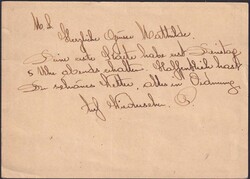 M. L.
Herzliche Grüsse Mathilde.
Deine erste Karte habe erst Dienstag
5 Uhr abends erhalten. Hoffentlich hast
Du schönes Wetter, alles in Ordnung.
Auf Wiedersehn